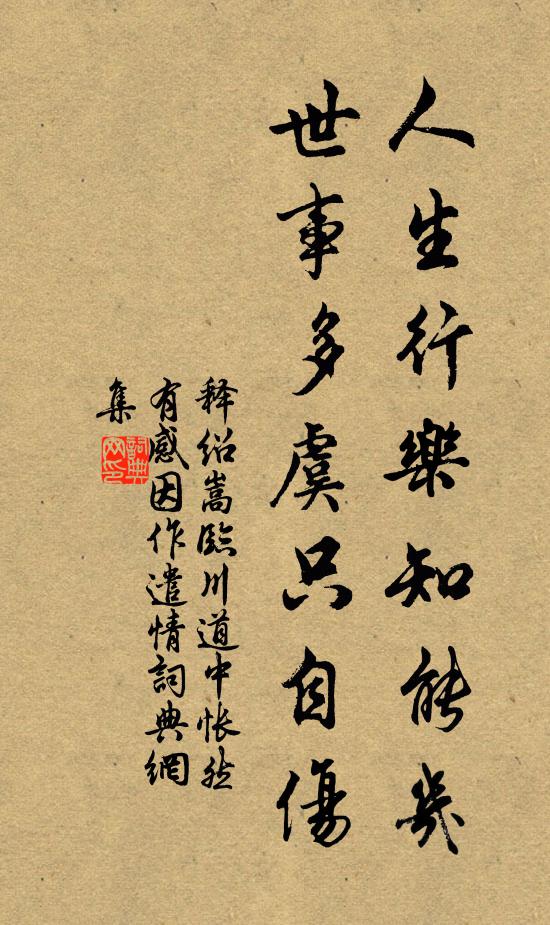 人生行樂知能幾
世事多虞只自傷
释绍嵩臨川道中怅然
有感因作遣情詞典網
集
詞典
网印